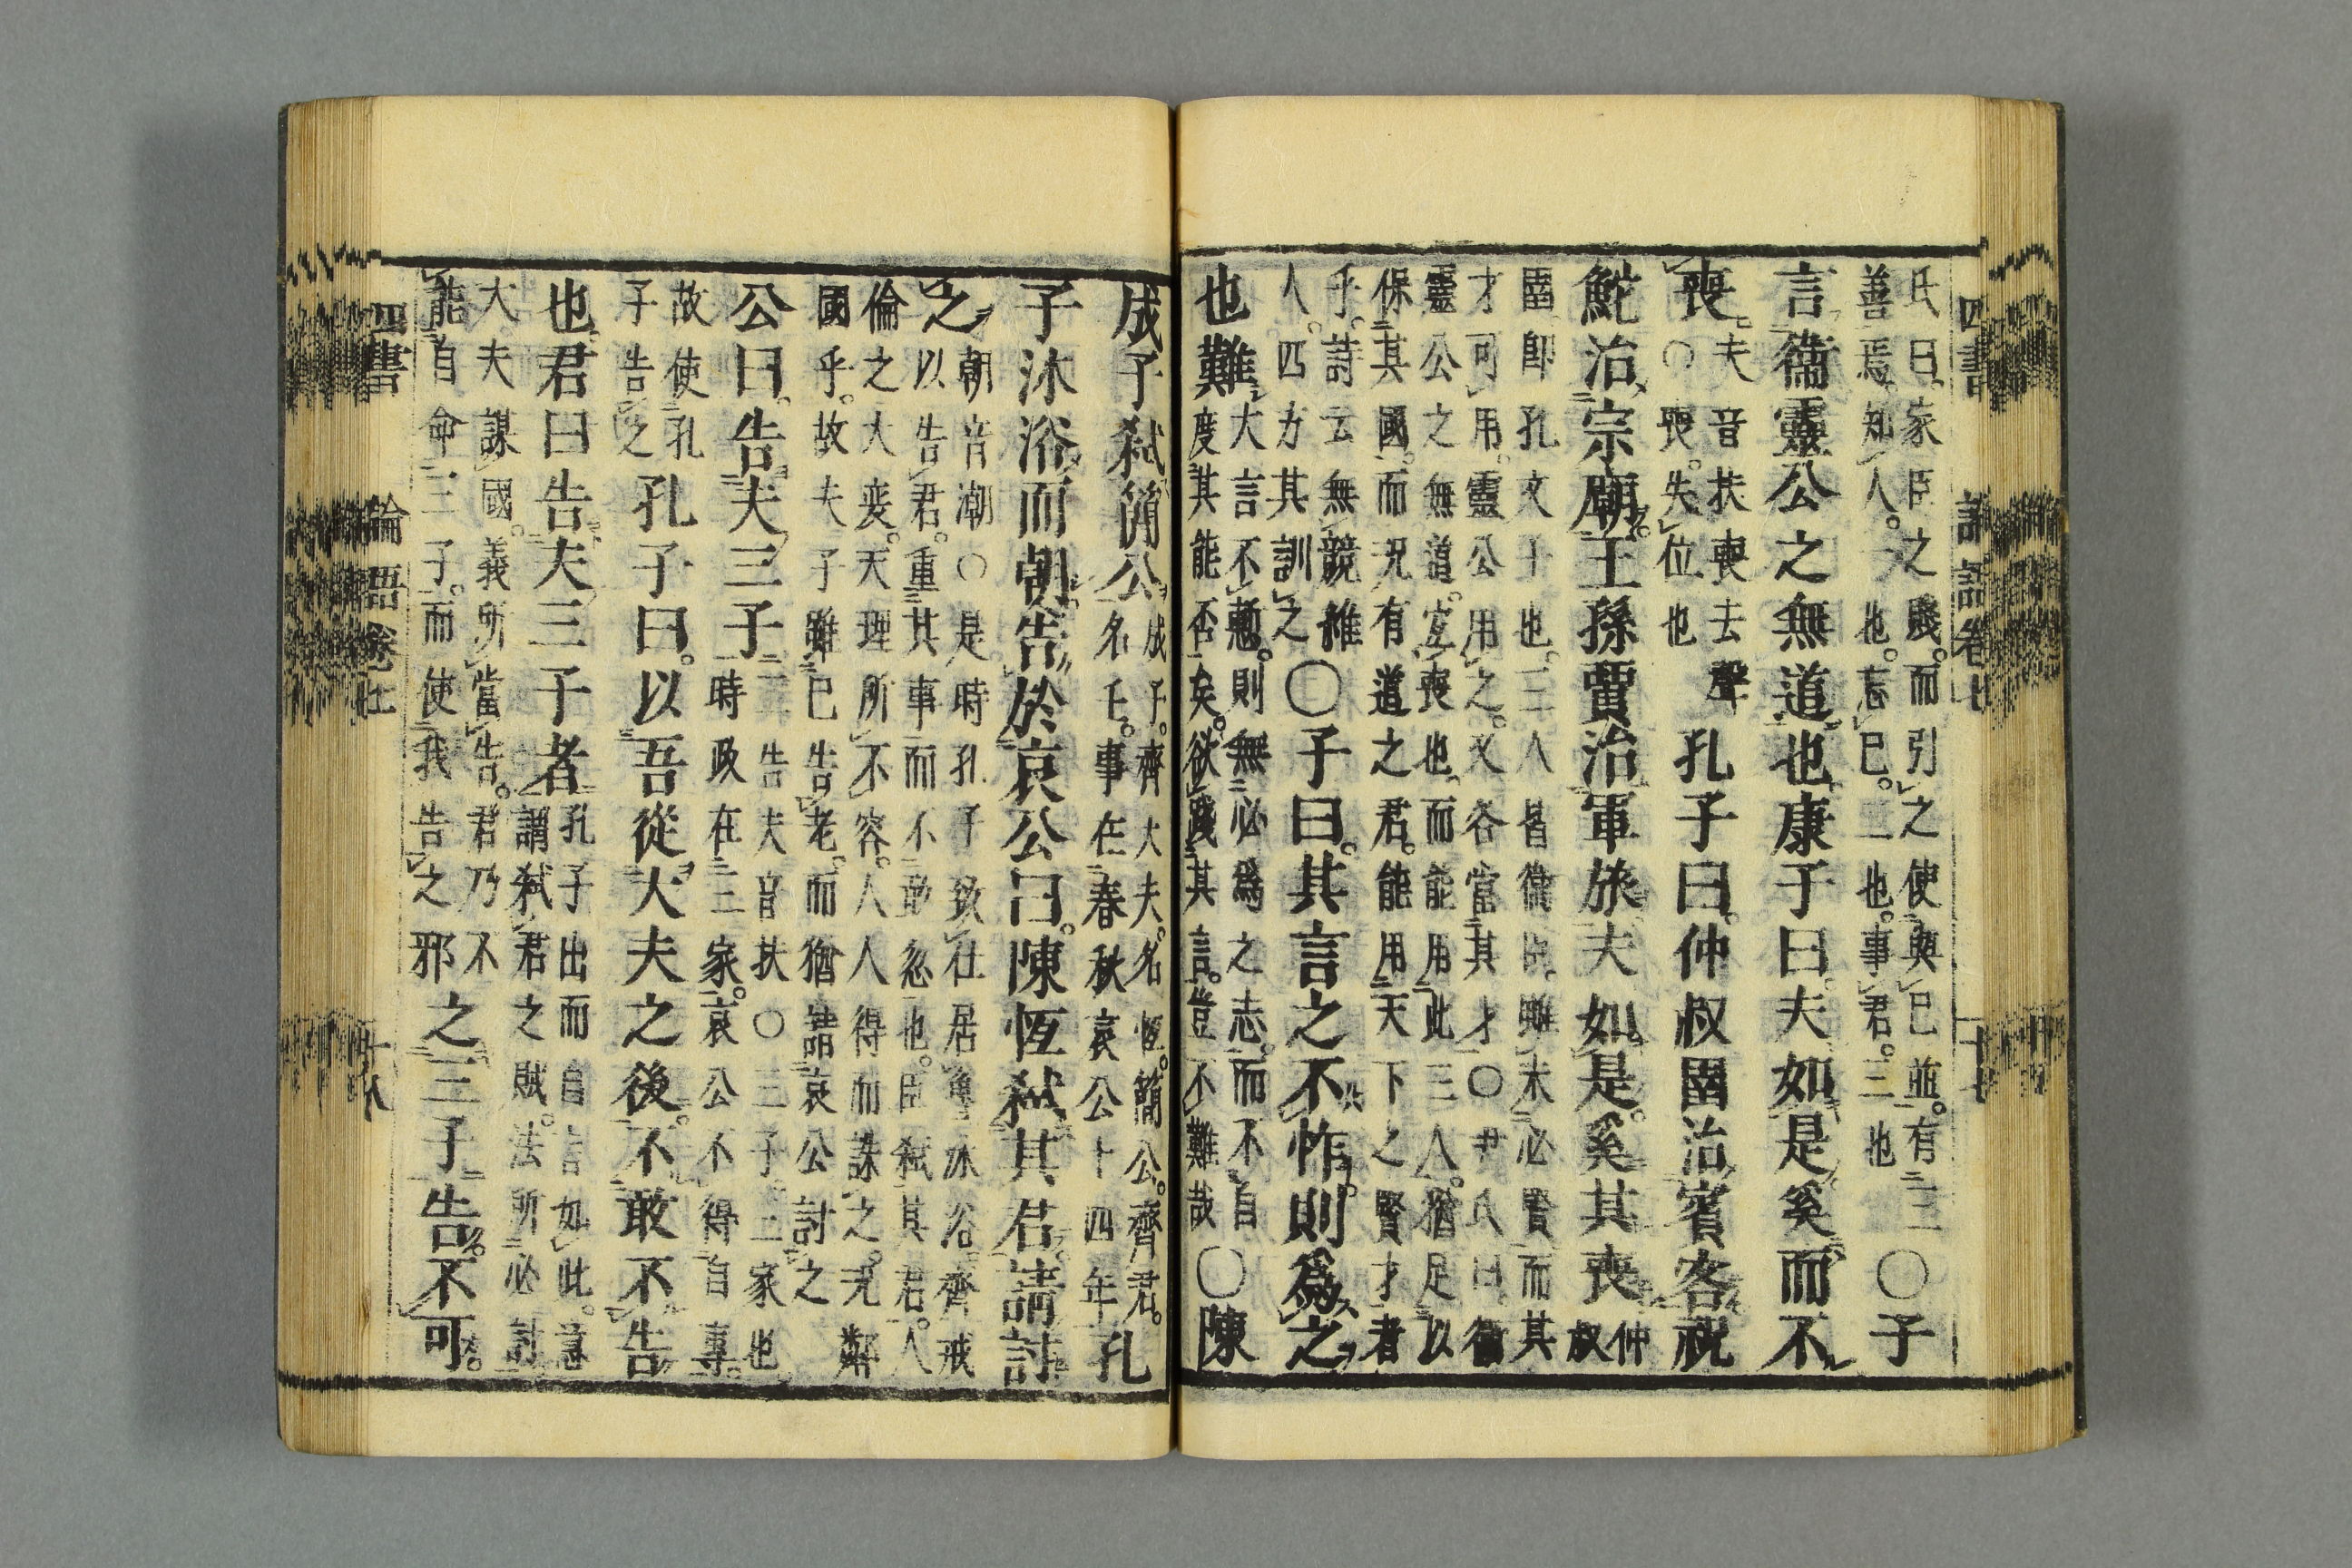 四書 論語卷七 二十七
氏曰。家臣之賤。而引之使與己並。有三
善焉。知人。一也。忘己。二也。事君。三也 ○子
言衞靈公之無道也康子曰夫如是奚而不
喪。夫音扶喪去聲
○喪。失位也 孔子曰。仲叔圉治賓客。祝
鮀治宗廟。王孫賈治軍旅。夫如是。奚其喪 仲叔
圉卽孔文子也。三人皆衞臣。雖未必賢而其
才可用。靈公用之。又各當其才○尹氏曰衞
靈公之無道。宜喪也。而能用此三人。猶足以
保其國。而況有道之君。能用天下之賢才者
乎。詩云無競維
人。四方其訓之 ○子曰。其言之不怍。則爲之
也難 大言不慙。則無必爲之志。而不自
度其能否矣。欲踐其言。豈不難哉 ○陳
成子弑簡公 成子。齊大夫。名恆。簡公。齊君。
名壬。事在春秋哀公十四年 孔
子沐浴而朝。告於哀公曰。陳恆弑其君。請討
之 朝音潮○是時孔子致仕居魯沐浴。齊戒
以告君。重其事而不敢忽也。臣弑其君。人
倫之大變。天理所不容。人人得而誅之。況鄰
國乎。故夫子雖已告老。而猶請哀公討之
公曰。告夫三子 二告夫音扶○三子。三家也
時政在三家。哀公不得自專。
故使孔
子告之 孔子曰。以吾從大夫之後。不敢不告
也。君曰告夫三子者 孔子出而自言如此。意
謂弑君之賊。法所必討
大夫謀國。義所當告。君乃不
能自命三子。而使我告之邪 之三子告。不可。
四書 論語卷七 二十八